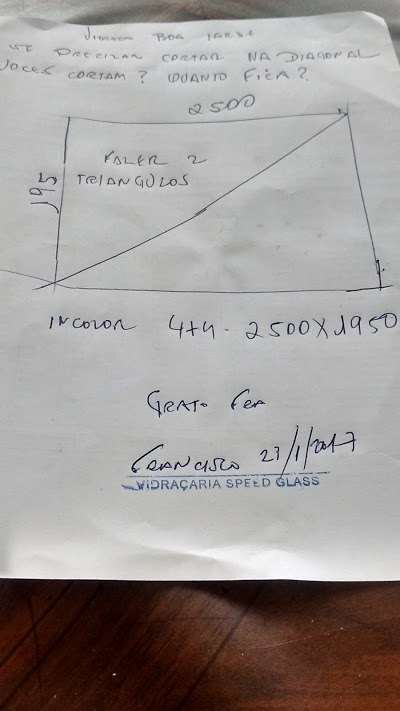 BOA TARDE
SE PRECIZAR CORTAR NA DIAGONAL
VOCES CORTAM? QUANTO FICA?
2500
FAZER 2
TRIANGULOS
195
INCOLOR 4+4 - 2500X1950
GRATO
FRANCISCO 23/1/2017
VIDRAÇARIA SPEED GLASS